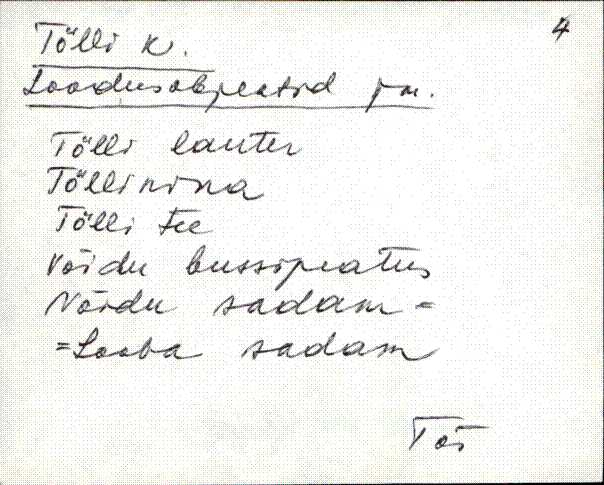 4
Tölli k.
Loodusobjektid jm.
Tölli lauter
Töllinina
Tölli tee
Võidu bussipeatus
Võidu sadam =
= Looba sadam
Tõs